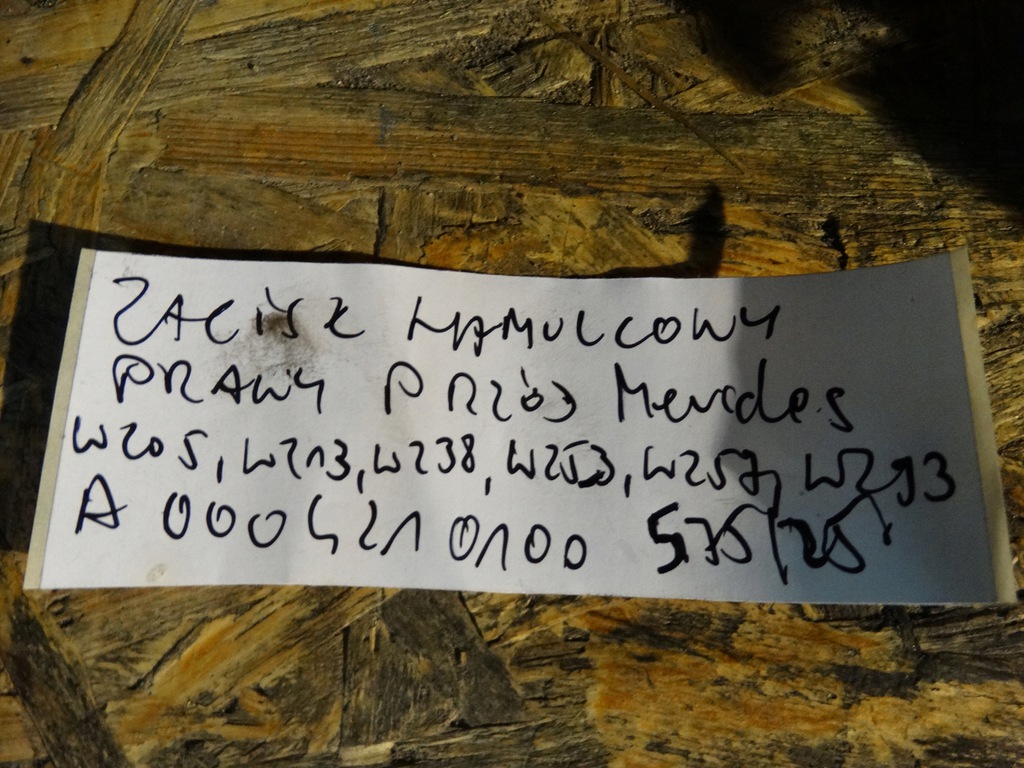 ZACISK HAMULCOWY
PRAWY PRZÓD Mercedes
W205, W213, W238, W253, W257, W293
A 000 421 0100 575/25